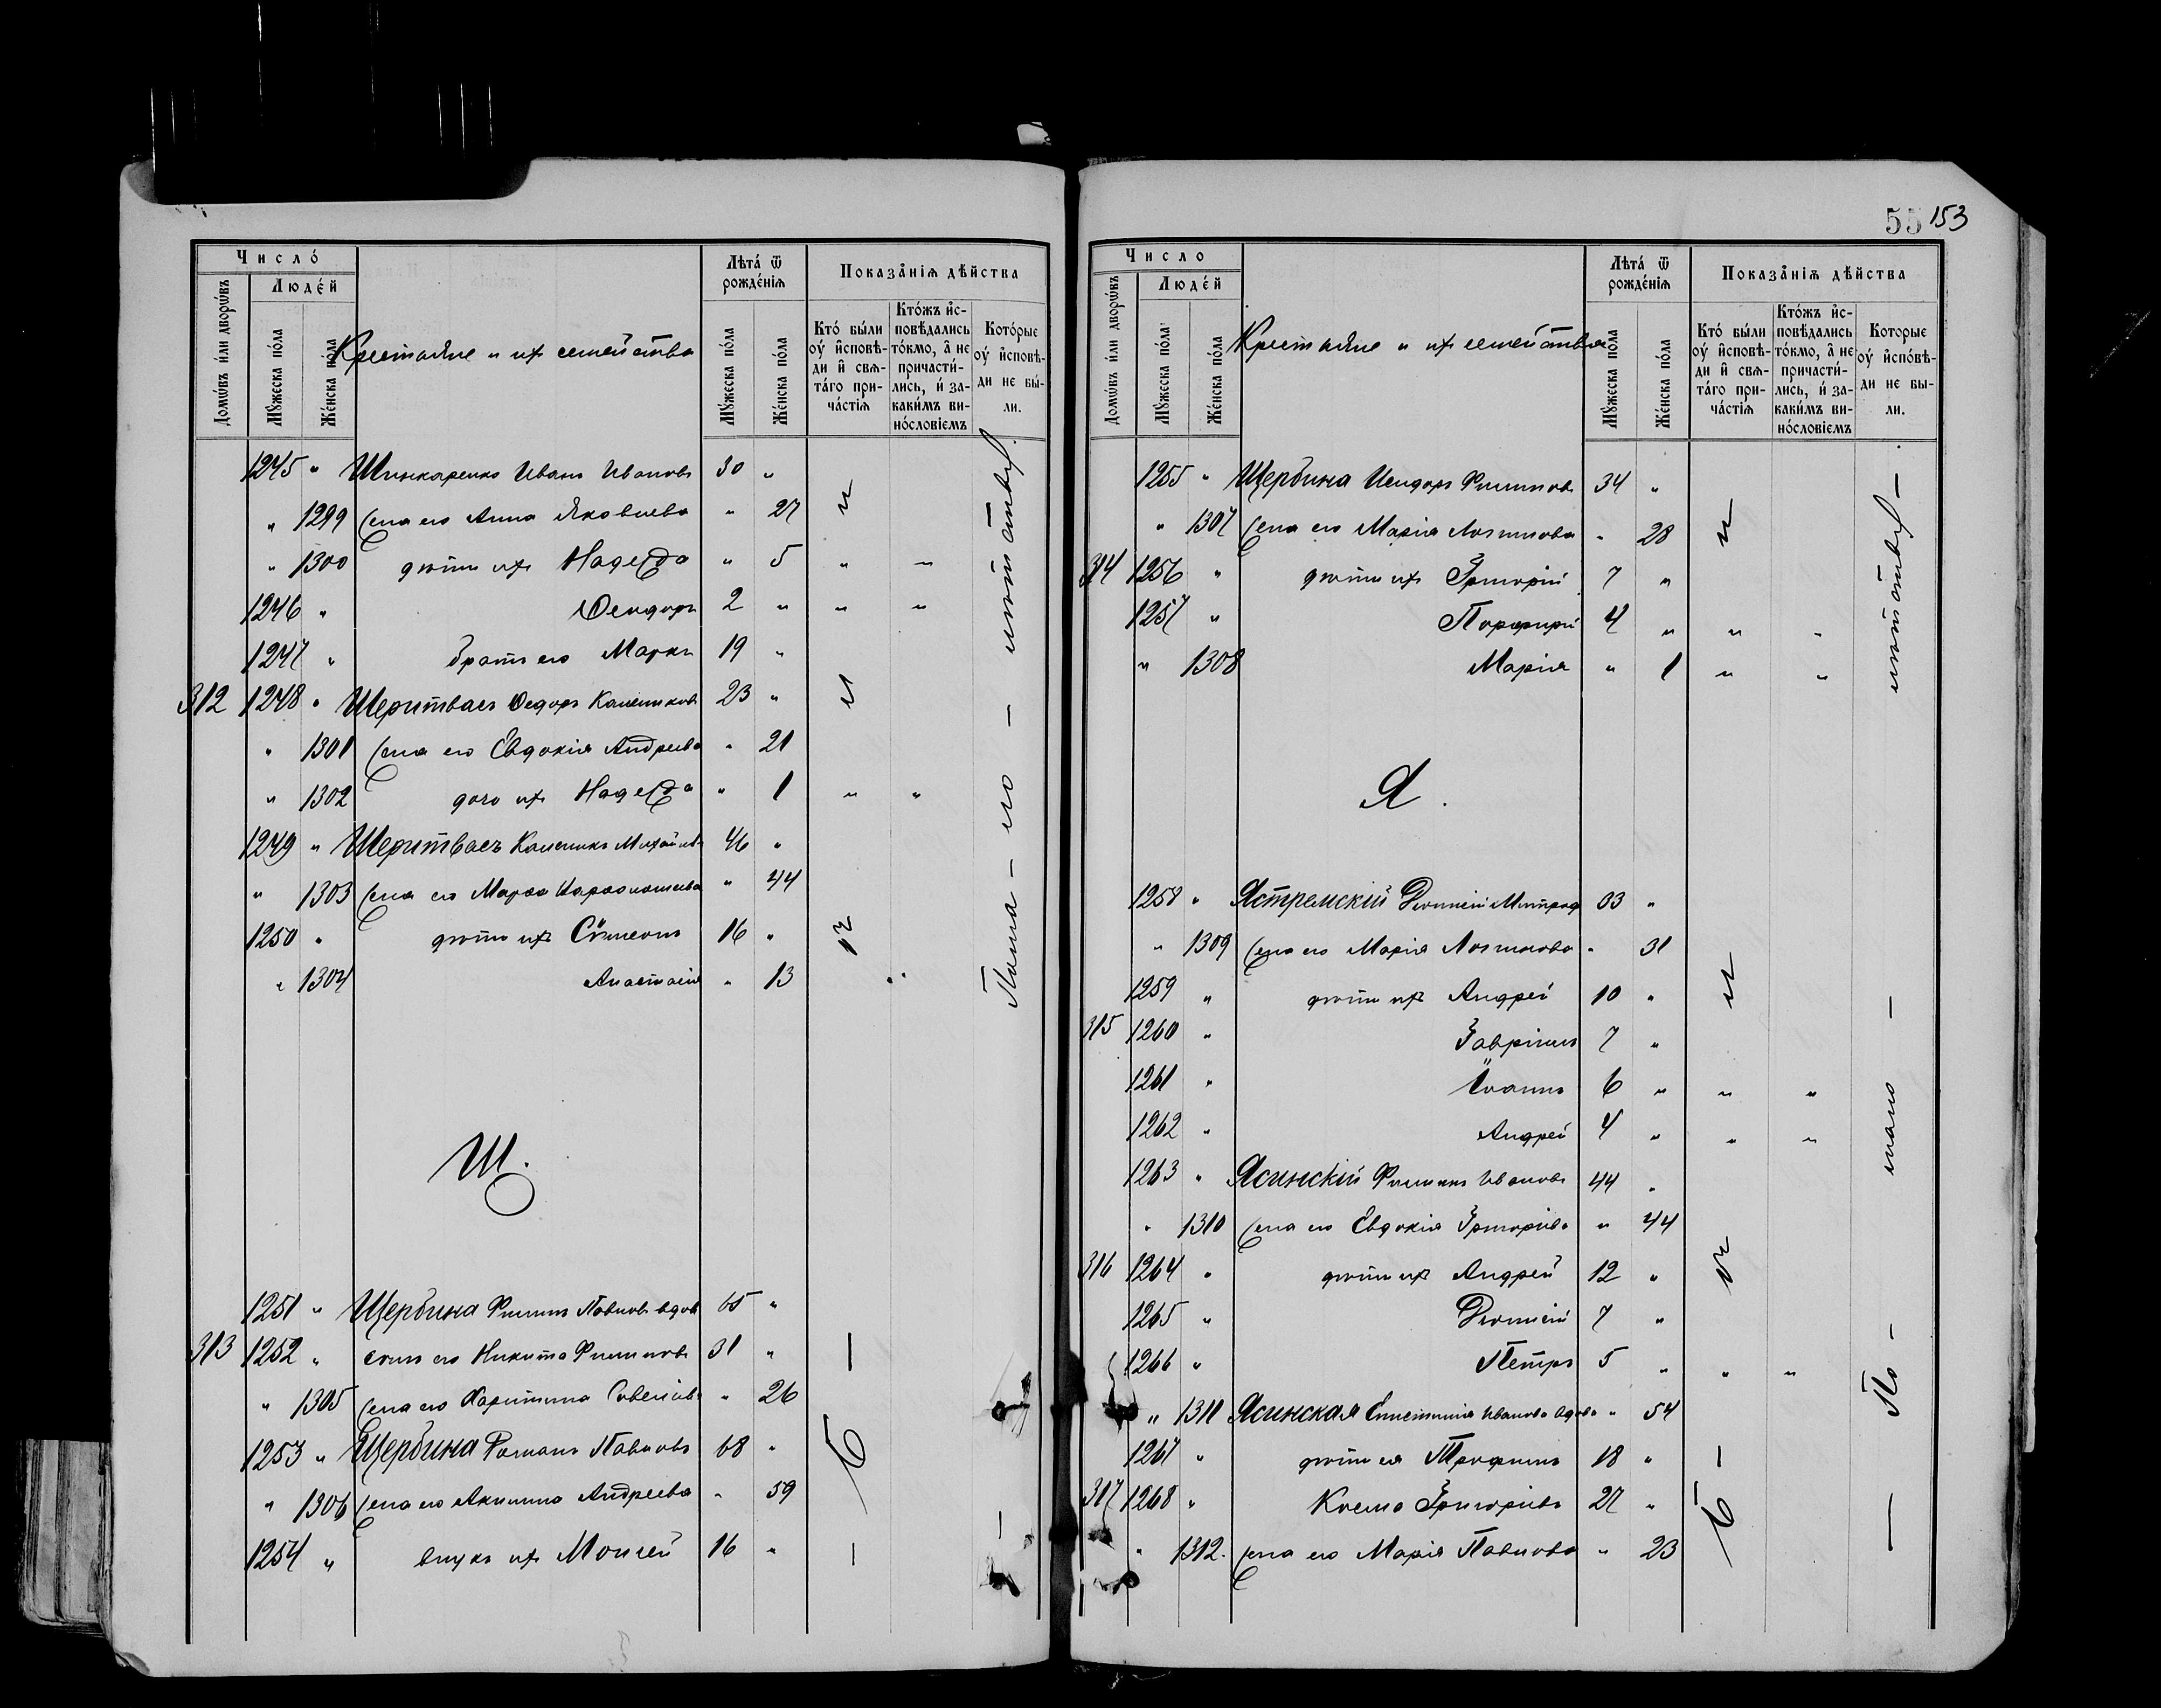 55 153
Число́
Людей
Домѡвъ или дворѡвъ
Мꙋжеска по́ла
Же́нска по́ла
Крестьяне и ихъ семейства
Лѣта́ ѿ рожде́нїѧ
Мꙋжеска по́ла
Же́нска по́ла
Показа̑нїѧ дѣ́йства
Кто́ бы́ли оу҆ и҆сповѣ-
ди и҆ свѧ-
та́го при-
ча́стїѧ
Кто́жъ и҆с-
повѣдались
то́кмо, а҆ не
причасти́-
лись, и҆ за-
каки́мъ ви-
но́словїемъ
Кото́рые
оу҆ и҆сповѣ-
ди не бы́-
ли.
1245 " Шинкаренко Иванъ Ивановъ 30 "
" 1299 жена его Анна Яковлева " 27 и
" 1300 дѣти ихъ Надежда " 5 " "
1246 " Ѳеодоръ 2 " " "
1247 " братъ его Маркъ 19 "
312 1248 " Шеритваеъ Ѳедоръ Калениковъ 23 " и
" 1301 жена его Евдокія Андреева " 21
" 1302 дочь ихъ Надежда " 1 " "
1249 " Шеритваеъ Каленикъ Михайловъ 46 "
" 1303 жена его Марѳа " 44
1250 " дѣти ихъ Сѵмеонъ 16 "
" 1304 Анастасія " 13 "
Щ.
1251 " Щербина Филиппъ Павловъ вдовъ 65 "
313 1252 " сынъ его Никита Филиповъ 31 "
" 1305 жена его Харитина Савеліева " 26
1253 " Щербина Романъ Павловъ 68 "
" 1306 жена его Акилина Андреева " 59
1254 " внукъ ихъ Моисей 16 "
Б
— лѣтствѣ.
Число
Людей
Домѡвъ или дворѡвъ
Мꙋжеска по́ла
Же́нска по́ла
Крестьяне и ихъ семейства
Лѣта́ ѿ рожде́нїѧ
Мꙋжеска по́ла
Же́нска по́ла
Показа̑нїѧ дѣ́йства
Кто́ бы́ли
оу҆ и҆сповѣ-
ди и҆ свѧ-
та́го при-
ча́стїѧ
Кто́жъ и҆с-
повѣдались
то́кмо, а҆ не
причасти́-
лись, и҆ за-
каки́мъ ви-
но́словїемъ
Которые
оу҆ и҆спо́вѣ-
ди не бы-
ли.
1255 " Щербина Исидоръ Филиповъ 34 "
" 1307 жена его Марія Логинова " 28 и
314 1256 " дѣти ихъ Григорій 7 "
1257 " Порфирій 4 " " "
" 1308 Марія " 1 " "
Я.
1258 " Ястремскій Діонисій Митроф 33 "
" 1309 жена его Марія Логинова " 31
1259 " дѣти ихъ Андрей 10 " и
315 1260 " Гавріилъ 7 "
1261 " Іоаннъ 6 " " "
1262 " Андрей 4 " " "
1263 " Ясинскій Филиппъ Ивановъ 44 "
" 1310 жена его Евдокія Григоріева " 44
316 1264 " дѣти ихъ Андрей 12 "
1265 " Діонисій 7 "
1266 " Петръ 5 " " "
" 1311 Ясинская Епистимія Иванова вдова " 54
1267 " дѣти ея Трофимъ 18 "
317 1268 " Косма Григоріевъ 27 "
" 1312. жена его Марія Павлова " 23
Б
— По — мало — лѣтствѣ —